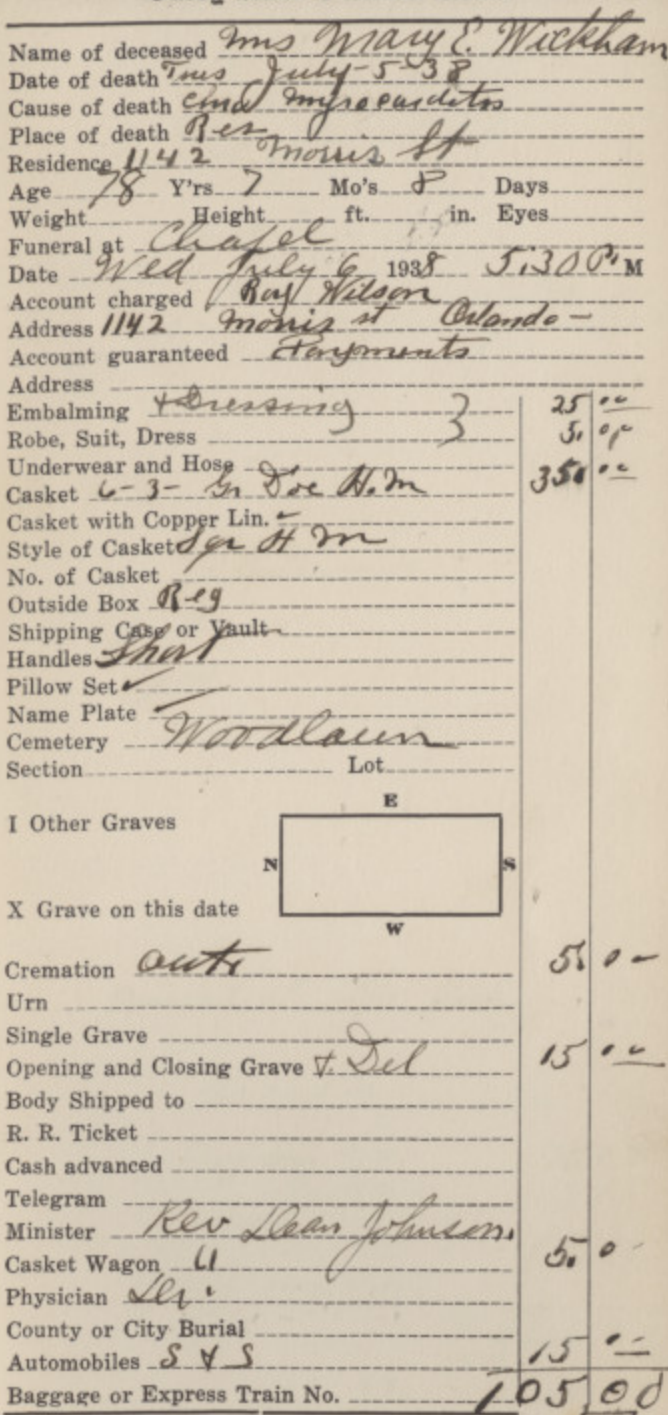 Name of deceased Mrs Mary E. Wickham
Date of death Tues July-5-38
Cause of death myrocarditos
Place of death Res
Residence 1142 Morris St
Age 78 Y'rs 7 Mo's 8 Days
Weight Height ft. in. Eyes
Funeral at Chapel
Date Wed July 6 1938 5:30 P. M
Account charged Roy Wilson
Address 1142 Morris st Orlando-
Account guaranteed Payments
Address
Embalming + Dressing } 25 00
Robe, Suit, Dress 5. 00
Underwear and Hose
Casket 6-3- Gr Doe H.M 35. 00
Casket with Copper Lin.
Style of Casket Sqr H M
No. of Casket
Outside Box Reg
Shipping Case or Vault
Handles Short
Pillow Set ✓
Name Plate
Cemetery Woodlawn
Section Lot
E
I Other Graves
N S
X Grave on this date
W
Cremation 5. 0-
Urn
Single Grave
Opening and Closing Grave + Del 15 00
Body Shipped to
R. R. Ticket
Cash advanced
Telegram
Minister Rev Dean Johnson. 5. 0-
Casket Wagon
Physician
County or City Burial
Automobiles S & S 15 00
Baggage or Express Train No. 105.00